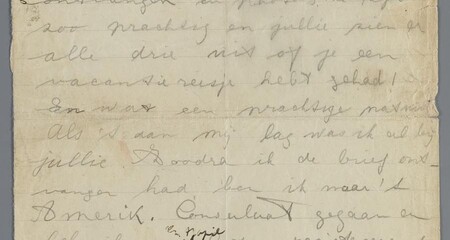 ontvangen
zoo prachtig en jullie zien er
alle drie uit of je een
vacantie reisje hebt gehad!
En wat een prachtige natuur
Als 't aan mij lag was ik al bij
jullie Zoodra ik de brief ont-
vangen had ben ik naar 't
Amerik. Consulaat gegaan en